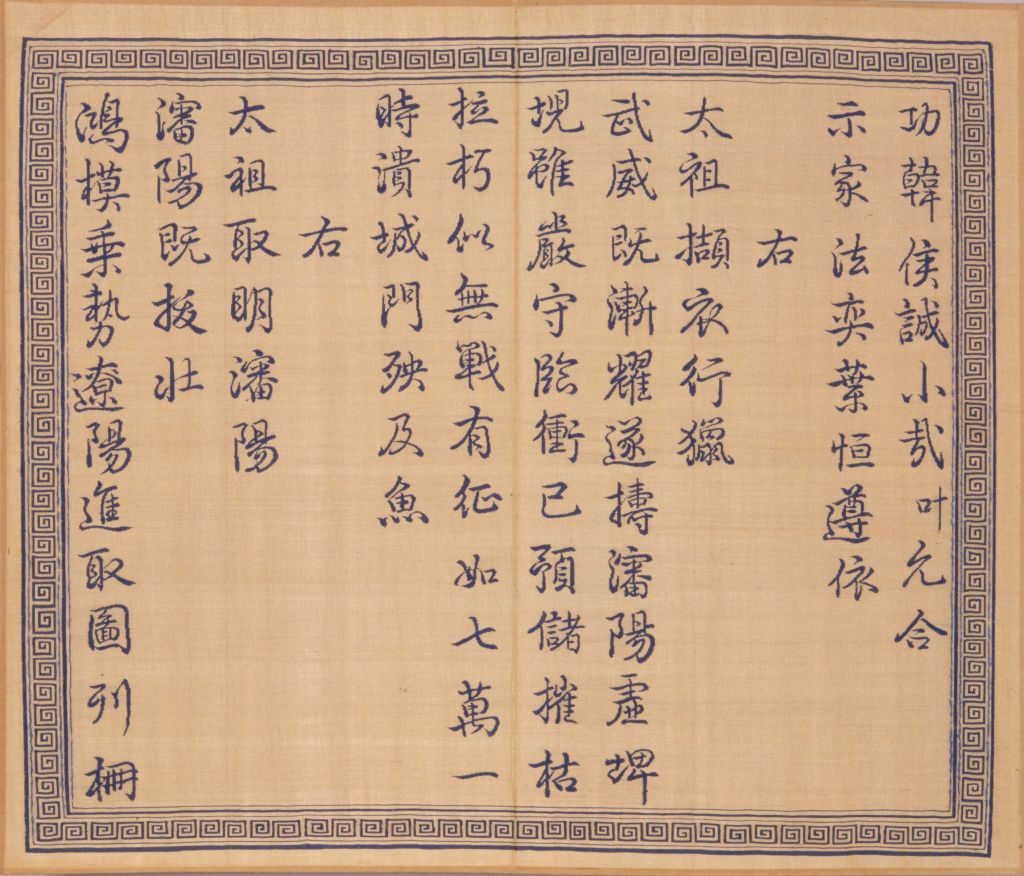 功韓侯誠小哉叶允合
示家法奕葉恒遵依
右
太祖擷衣行獵
武威既漸耀遂擣瀋陽虛埤
堄雖嚴守陰衝已預儲摧枯
拉朽似無戰有征如七萬一
時潰城門殃及魚
右
太祖取明瀋陽
瀋陽既拔壮
鴻模乗勢遼陽進取圖列柵